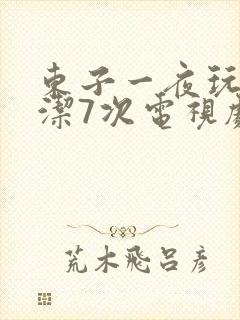 东子一夜玩
潔7次电視
荒木飛呂彦